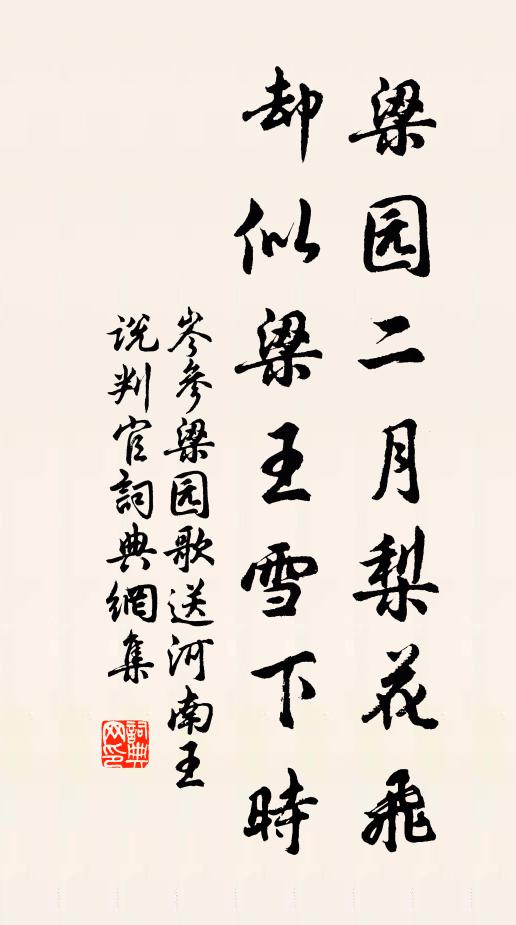 梁园二月梨花飛
却似梁王雪下時
岑參梁园歌送河南王
説判官詞典網集
詞典
网印